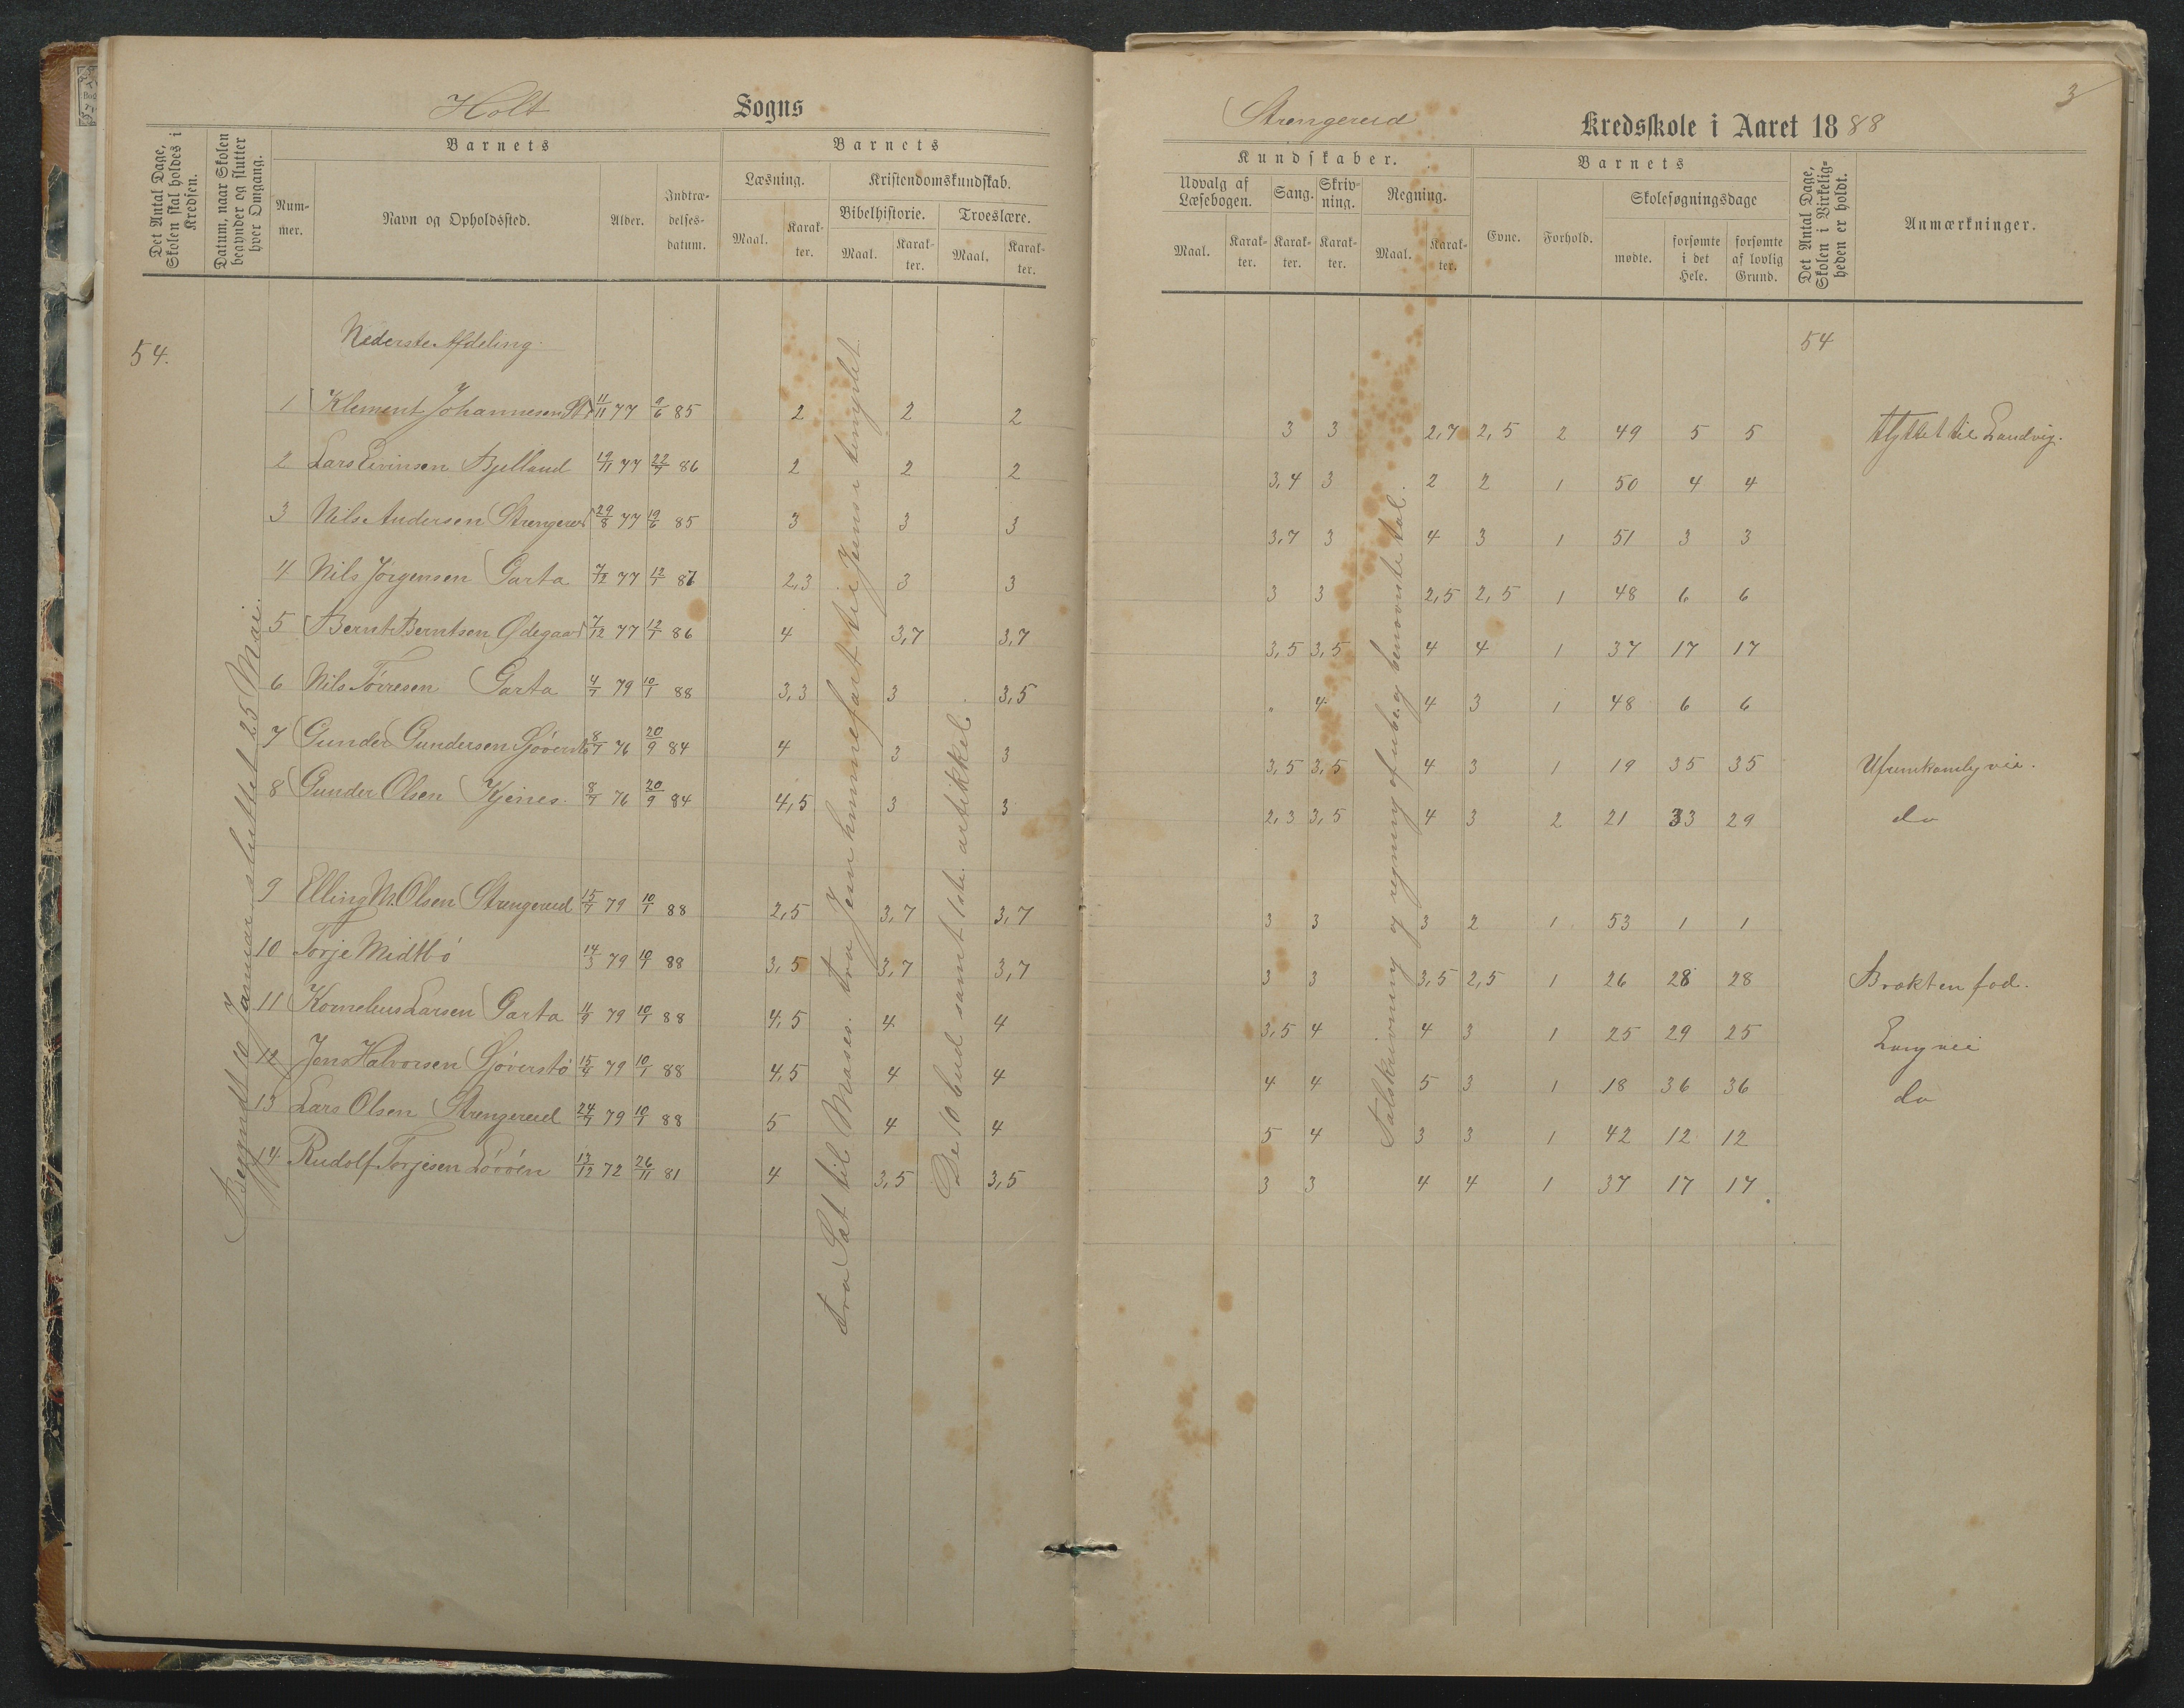 Holt Sogns
Strengereid Kredsskole i Aaret 1888
3
Det Antal Dage, Skolen skal holdes i Kredsen.
Datum, naar Skolen begynder og slutter hver Omgang.
Barnets
Num-
mer.
Navn og Opholdssted.
Alder.
Indtræ-
delses-
datum.
Barnets
Læsning.
Kristendomskundskab.
Bibelhistorie.
Troeslære.
Maal.
Karak-
ter.
Maal.
Karak-
ter.
Maal.
Karak-
ter.
Kundskaber.
Udvalg af
Læsebogen.
Sang.
Skriv-
ning.
Regning.
Maal.
Karak-
ter.
Karak-
ter.
Karak-
ter.
Maal.
Karak-
ter.
Barnets
Evne.
Forhold.
Skolesøgningsdage
mødte.
forsømte
i det
Hele.
forsømte
af lovlig
Grund.
Det Antal Dage, Skolen i Virkelig-
heden er holdt.
Anmærkninger.
54. Nederste Afdeling 54
1 Klement Johannesen 11/11 77 9/6 85 2 2 2 3 3 2,7 2,5 2 49 5 5 flyttet til Landvig.
2 Lars Eivinsen Bjelland 19/11 77 22/7 86 2 2 2 3,4 3 2 2 1 50 4 4
3 Nils Andersen Strengereid 29/8 77 19/6 85 3 3 3 3,7 3 4 3 1 51 3 3
4 Nils Jørgensen Garta 7/12 77 12/1 87 2,3 3 3 3 3 2,5 2,5 1 48 6 6
5 Bernt Berntsen Ødegaard 7/12 77 12/1 86 4 3,7 3,7 3,5 3,5 4 4 1 37 17 17
6 Nils Tørresen Garta 4/7 79 10/1 88 3,3 3 3,5 " 4 4 3 1 48 6 6
7 Gunder Gundersen Gjøverstø 8/7 76 20/9 84 4 3 3 3,5 3,5 4 3 1 19 35 35 Ufremkomlig vei.
8 Gunder Olsen Kjenes. 8/7 76 20/9 84 4,5 3 3 2,3 3,5 4 3 2 21 33 29 do
9 Elling M. Olsen Strengereid 15/7 79 10/1 88 2,5 3,7 3,7 3 3 3 2 1 53 1 1
10 Torje Midtbø 14/3 79 10/1 88 3,5 3,7 3,7 3 3 3,5 2,5 1 26 28 28 Brækt en fod.
11 Kornelius Larsen Garta 11/9 79 10/1 88 4,5 4 4 3,5 4 4 3 1 25 29 25 Lang vei
12 Jens Halvorsen Gjøverstø 15/4 79 10/1 88 4,5 4 4 4 4 5 3 1 18 36 36 do
13 Lars Olsen Strengereid 24/7 79 10/1 88 5 4 4 5 4 3 3 1 42 12 12
14 Rudolf Torjesen Løvøen 13/12 72 26/11 81 4 3,5 3,5 3 3 4 4 1 37 17 17.
Begyndt 10 Januar sluttet 25 Mai.
De 10 bud samt 1ste artikkel
Talskrivning og regning af ube. og benævnte tal.